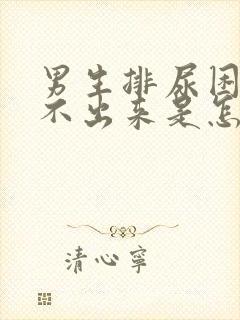 男生排尿困
不出来是怎
清心寧